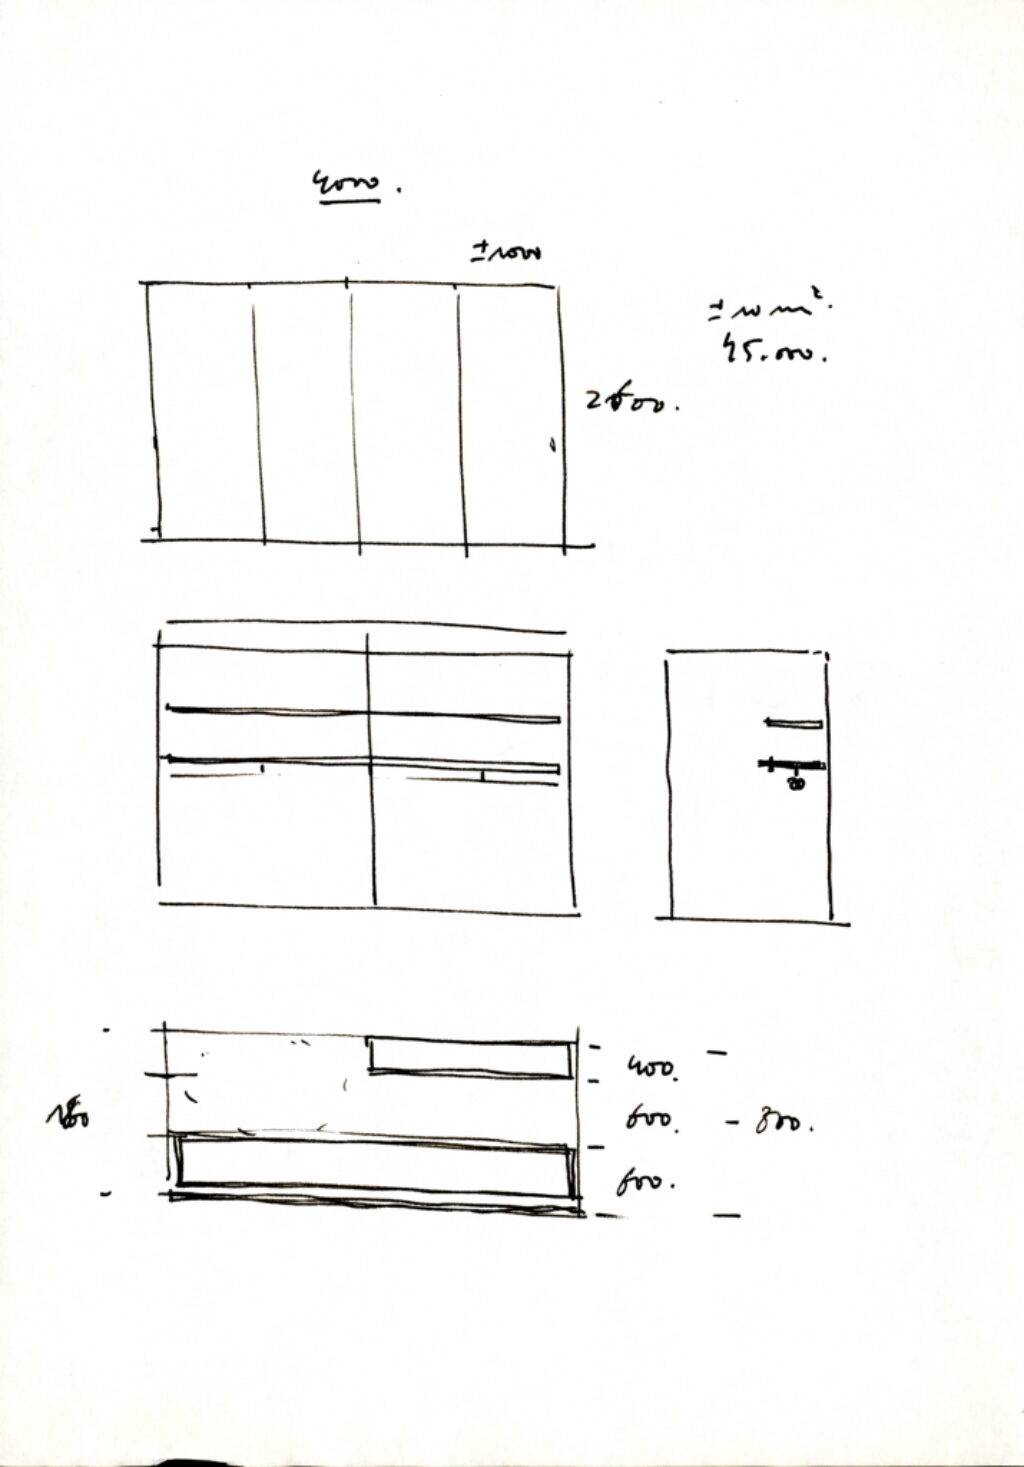 4000.
±1000
± 10 m².
45.000.
2600.
400.
600.
800.
600.